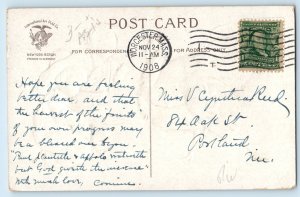 POST CARD
FOR CORRESPONDENCE
FOR ADDRESS ONLY
WORCESTER, MASS.
NOV 24
11-AM
1908
Hope you are feeling
better dear, and that
the harvest of the fruits
of your own progress may
be a blessed one for you.
"Paul planteth & Apollo watereth
but God giveth the increase"
with much love,
Miss V Cynthia Reed
84 Oak St
Portland
Me.